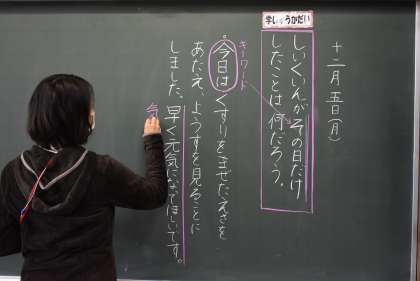 十二月五日(月)
学しゅうかだい
しいくいんがその日だけ
したことは何だろう。
キーワード
。今日はくすりをまぜたえさを
あたえ、ようすを見ることに
しました。早く元気になってほしいです。